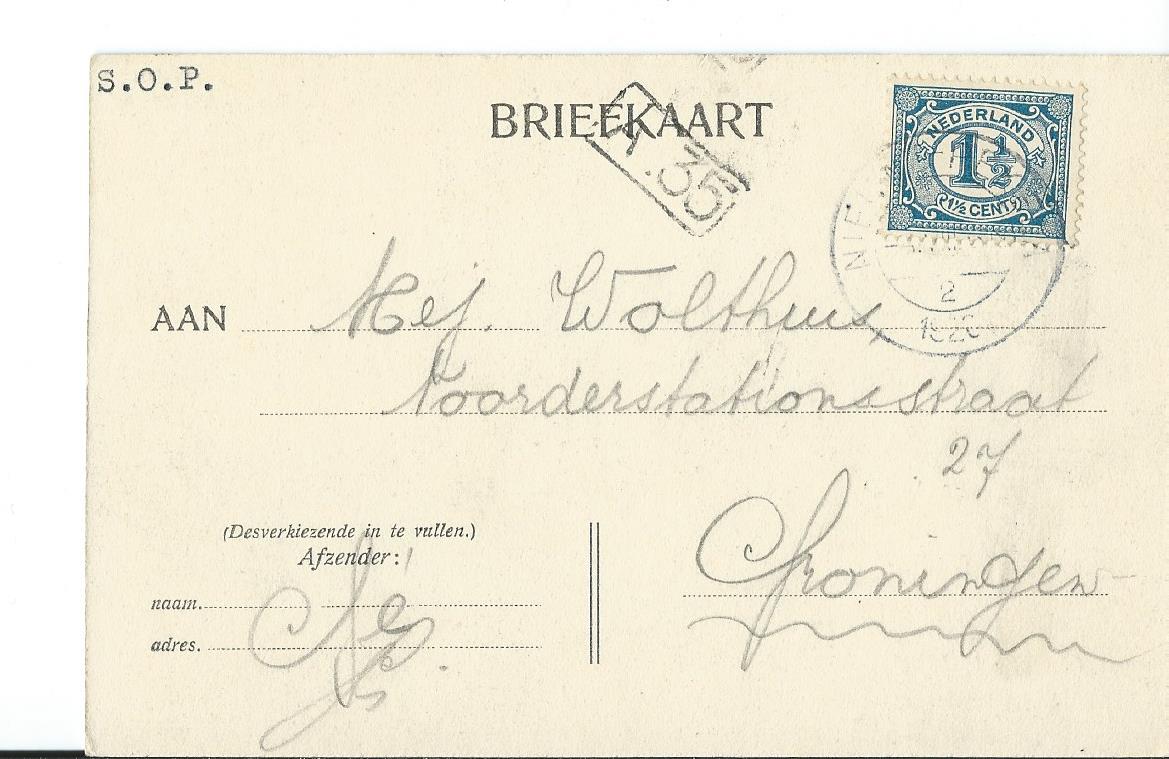 S.O.P.
BRIEFKAART
35
NEDERLAND
1½
1½ CENT
2
AAN Mej. Wolthuis,
Noorderstationsstraat
27
Groningen
(Desverkiezende in te vullen.)
Afzender:
naam.
adres.